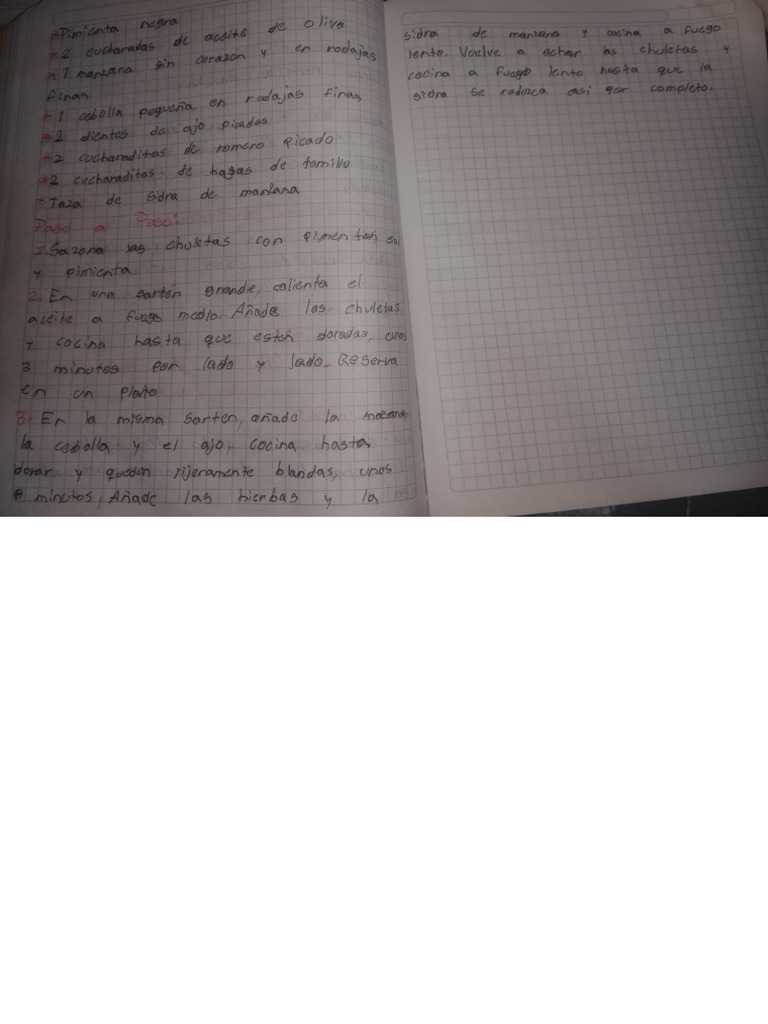 Pimienta negra
2 cucharadas de aceite de oliva
1 manzana sin corazón y en rodajas
finas
1 cebolla pequeña en rodajas finas
2 dientes de ajo picados
2 cucharaditas de romero picado
2 cucharaditas de hojas de tomillo
Taza de sidra de manzana
Paso a Paso:
1. Sazona las chuletas con pimenton sal
y pimienta
2. En una sartén grande, calienta el
aceite a fuego medio. Añade las chuletas
y cocina hasta que estén doradas, unos
3 minutos por lado y lado. Reserva
en un plato
3. En la misma sarten, añade la mazana
la cebolla y el ajo, cocina hasta
dorar y queden lijeramente blandas, unos
8 minutos, Añade las hierbas y la
sidra de manzana y cocina a fuego
lento. Vuelve a echar las chuletas y
cocina a fuego lento hasta que la
sidra se reduzca asi por completo.